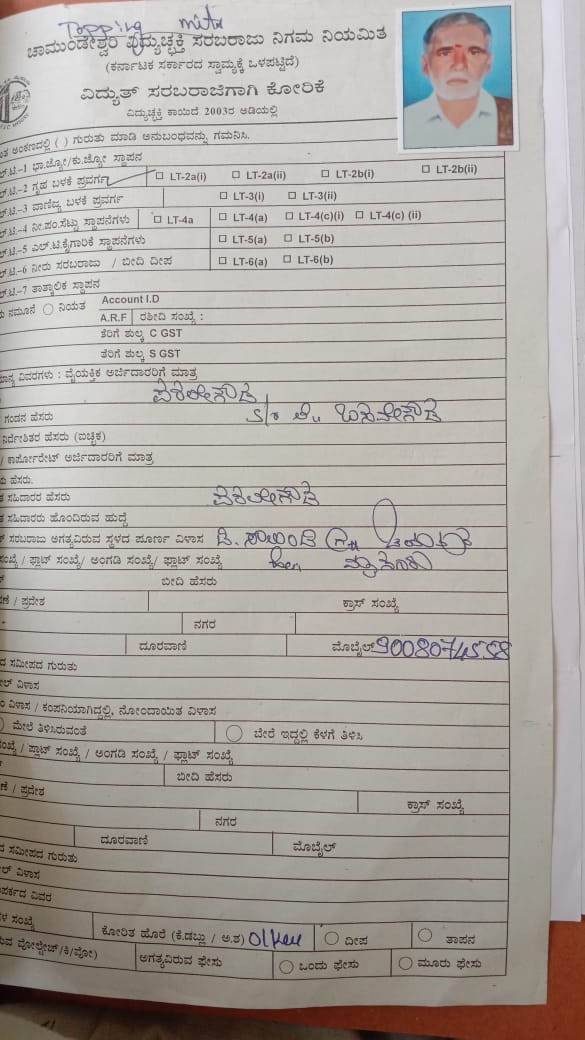 Topping mitr
ಚಾಮುಂಡೇಶ್ವರಿ ವಿದ್ಯುಚ್ಛಕ್ತಿ ಸರಬರಾಜು ನಿಗಮ ನಿಯಮಿತ
(ಕರ್ನಾಟಕ ಸರ್ಕಾರದ ಸ್ವಾಮ್ಯಕ್ಕೆ ಒಳಪಟ್ಟಿದೆ)
ವಿದ್ಯುತ್ ಸರಬರಾಜಿಗಾಗಿ ಕೋರಿಕೆ
ವಿದ್ಯುಚ್ಛಕ್ತಿ ಕಾಯಿದೆ 2003ರ ಅಡಿಯಲ್ಲಿ
ಅಂಕಣದಲ್ಲಿ ( ) ಗುರುತು ಮಾಡಿ ಅನುಬಂಧವನ್ನು ಗಮನಿಸಿ.
ಲ್.ಟಿ–1 ಭಾ.ಜ್ಯೋ/ಕು.ಜ್ಯೋ ಸ್ಥಾಪನ
ಲ್.ಟಿ–2 ಗೃಹ ಬಳಕೆ ಪ್ರವರ್ಗ ☐ LT-2a(i) ☐ LT-2a(ii) ☐ LT-2b(i) ☐ LT-2b(ii)
ಲ್.ಟಿ–3 ವಾಣಿಜ್ಯ ಬಳಕೆ ಪ್ರವರ್ಗ ☐ LT-3(i) ☐ LT-3(ii)
ಲ್.ಟಿ–4 ನೀ.ಪಂ.ಸೆಟ್ಟು ಸ್ಥಾಪನೆಗಳು ☐ LT-4a ☐ LT-4(a) ☐ LT-4(c)(i) ☐ LT-4(c) (ii)
ಲ್.ಟಿ–5 ಎಲ್.ಟಿ.ಕೈಗಾರಿಕೆ ಸ್ಥಾಪನೆಗಳು ☐ LT-5(a) ☐ LT-5(b)
ಲ್.ಟಿ–6 ನೀರು ಸರಬರಾಜು / ಬೀದಿ ದೀಪ ☐ LT-6(a) ☐ LT-6(b)
ಲ್.ಟಿ–7 ತಾತ್ಕಾಲಿಕ ಸ್ಥಾಪನ
ನಮೂನೆ ನಿಯತ Account I.D
A.R.F ರಶೀದಿ ಸಂಖ್ಯೆ :
ತೆರಿಗೆ ಶುಲ್ಕ C GST
ತೆರಿಗೆ ಶುಲ್ಕ S GST
ವಿವರಗಳು : ವೈಯಕ್ತಿಕ ಅರ್ಜಿದಾರರಿಗೆ ಮಾತ್ರ
ಗಂಡನ ಹೆಸರು S/o
ನಿರ್ದೇಶಿತರ ಹೆಸರು (ಐಚ್ಛಿಕ)
/ ಕಾರ್ಪೊರೇಟ್ ಅರ್ಜಿದಾರರಿಗೆ ಮಾತ್ರ
ಹೆಸರು.
ಸಹಿದಾರರ ಹೆಸರು
ಸಹಿದಾರರು ಹೊಂದಿರುವ ಹುದ್ದೆ
ಸರಬರಾಜು ಅಗತ್ಯವಿರುವ ಸ್ಥಳದ ಪೂರ್ಣ ವಿಳಾಸ
ಸಂಖ್ಯೆ / ಪ್ಲಾಟ್ ಸಂಖ್ಯೆ/ ಅಂಗಡಿ ಸಂಖ್ಯೆ/ ಫ್ಲಾಟ್ ಸಂಖ್ಯೆ
ಬೀದಿ ಹೆಸರು
/ ಪ್ರದೇಶ ಕ್ರಾಸ್ ಸಂಖ್ಯೆ
ನಗರ
ದೂರವಾಣಿ ಮೊಬೈಲ್ 9008074558
ಸಮೀಪದ ಗುರುತು
ವಿಳಾಸ
ವಿಳಾಸ / ಕಂಪನಿಯಾಗಿದ್ದಲ್ಲಿ, ನೋಂದಾಯಿತ ವಿಳಾಸ
ಮೇಲೆ ತಿಳಿಸಿರುವಂತೆ ಬೇರೆ ಇದ್ದಲ್ಲಿ ಕೆಳಗೆ ತಿಳಿಸಿ
ಸಂಖ್ಯೆ / ಪ್ಲಾಟ್ ಸಂಖ್ಯೆ / ಅಂಗಡಿ ಸಂಖ್ಯೆ / ಫ್ಲಾಟ್ ಸಂಖ್ಯೆ
ಬೀದಿ ಹೆಸರು
/ ಪ್ರದೇಶ ಕ್ರಾಸ್ ಸಂಖ್ಯೆ
ನಗರ
ದೂರವಾಣಿ ಮೊಬೈಲ್
ಸಮೀಪದ ಗುರುತು
ವಿಳಾಸ
ವಿವರ
ಸಂಖ್ಯೆ ಕೋರಿತ ಹೊರೆ (ಕೆ.ಡಬ್ಲು / ಅ.ಶ) ದೀಪ ತಾಪನ
ವೋಲ್ಟೇಜ್/ಕಿ/ವೋ) ಅಗತ್ಯವಿರುವ ಫೇಸು ಒಂದು ಫೇಸು ಮೂರು ಫೇಸು